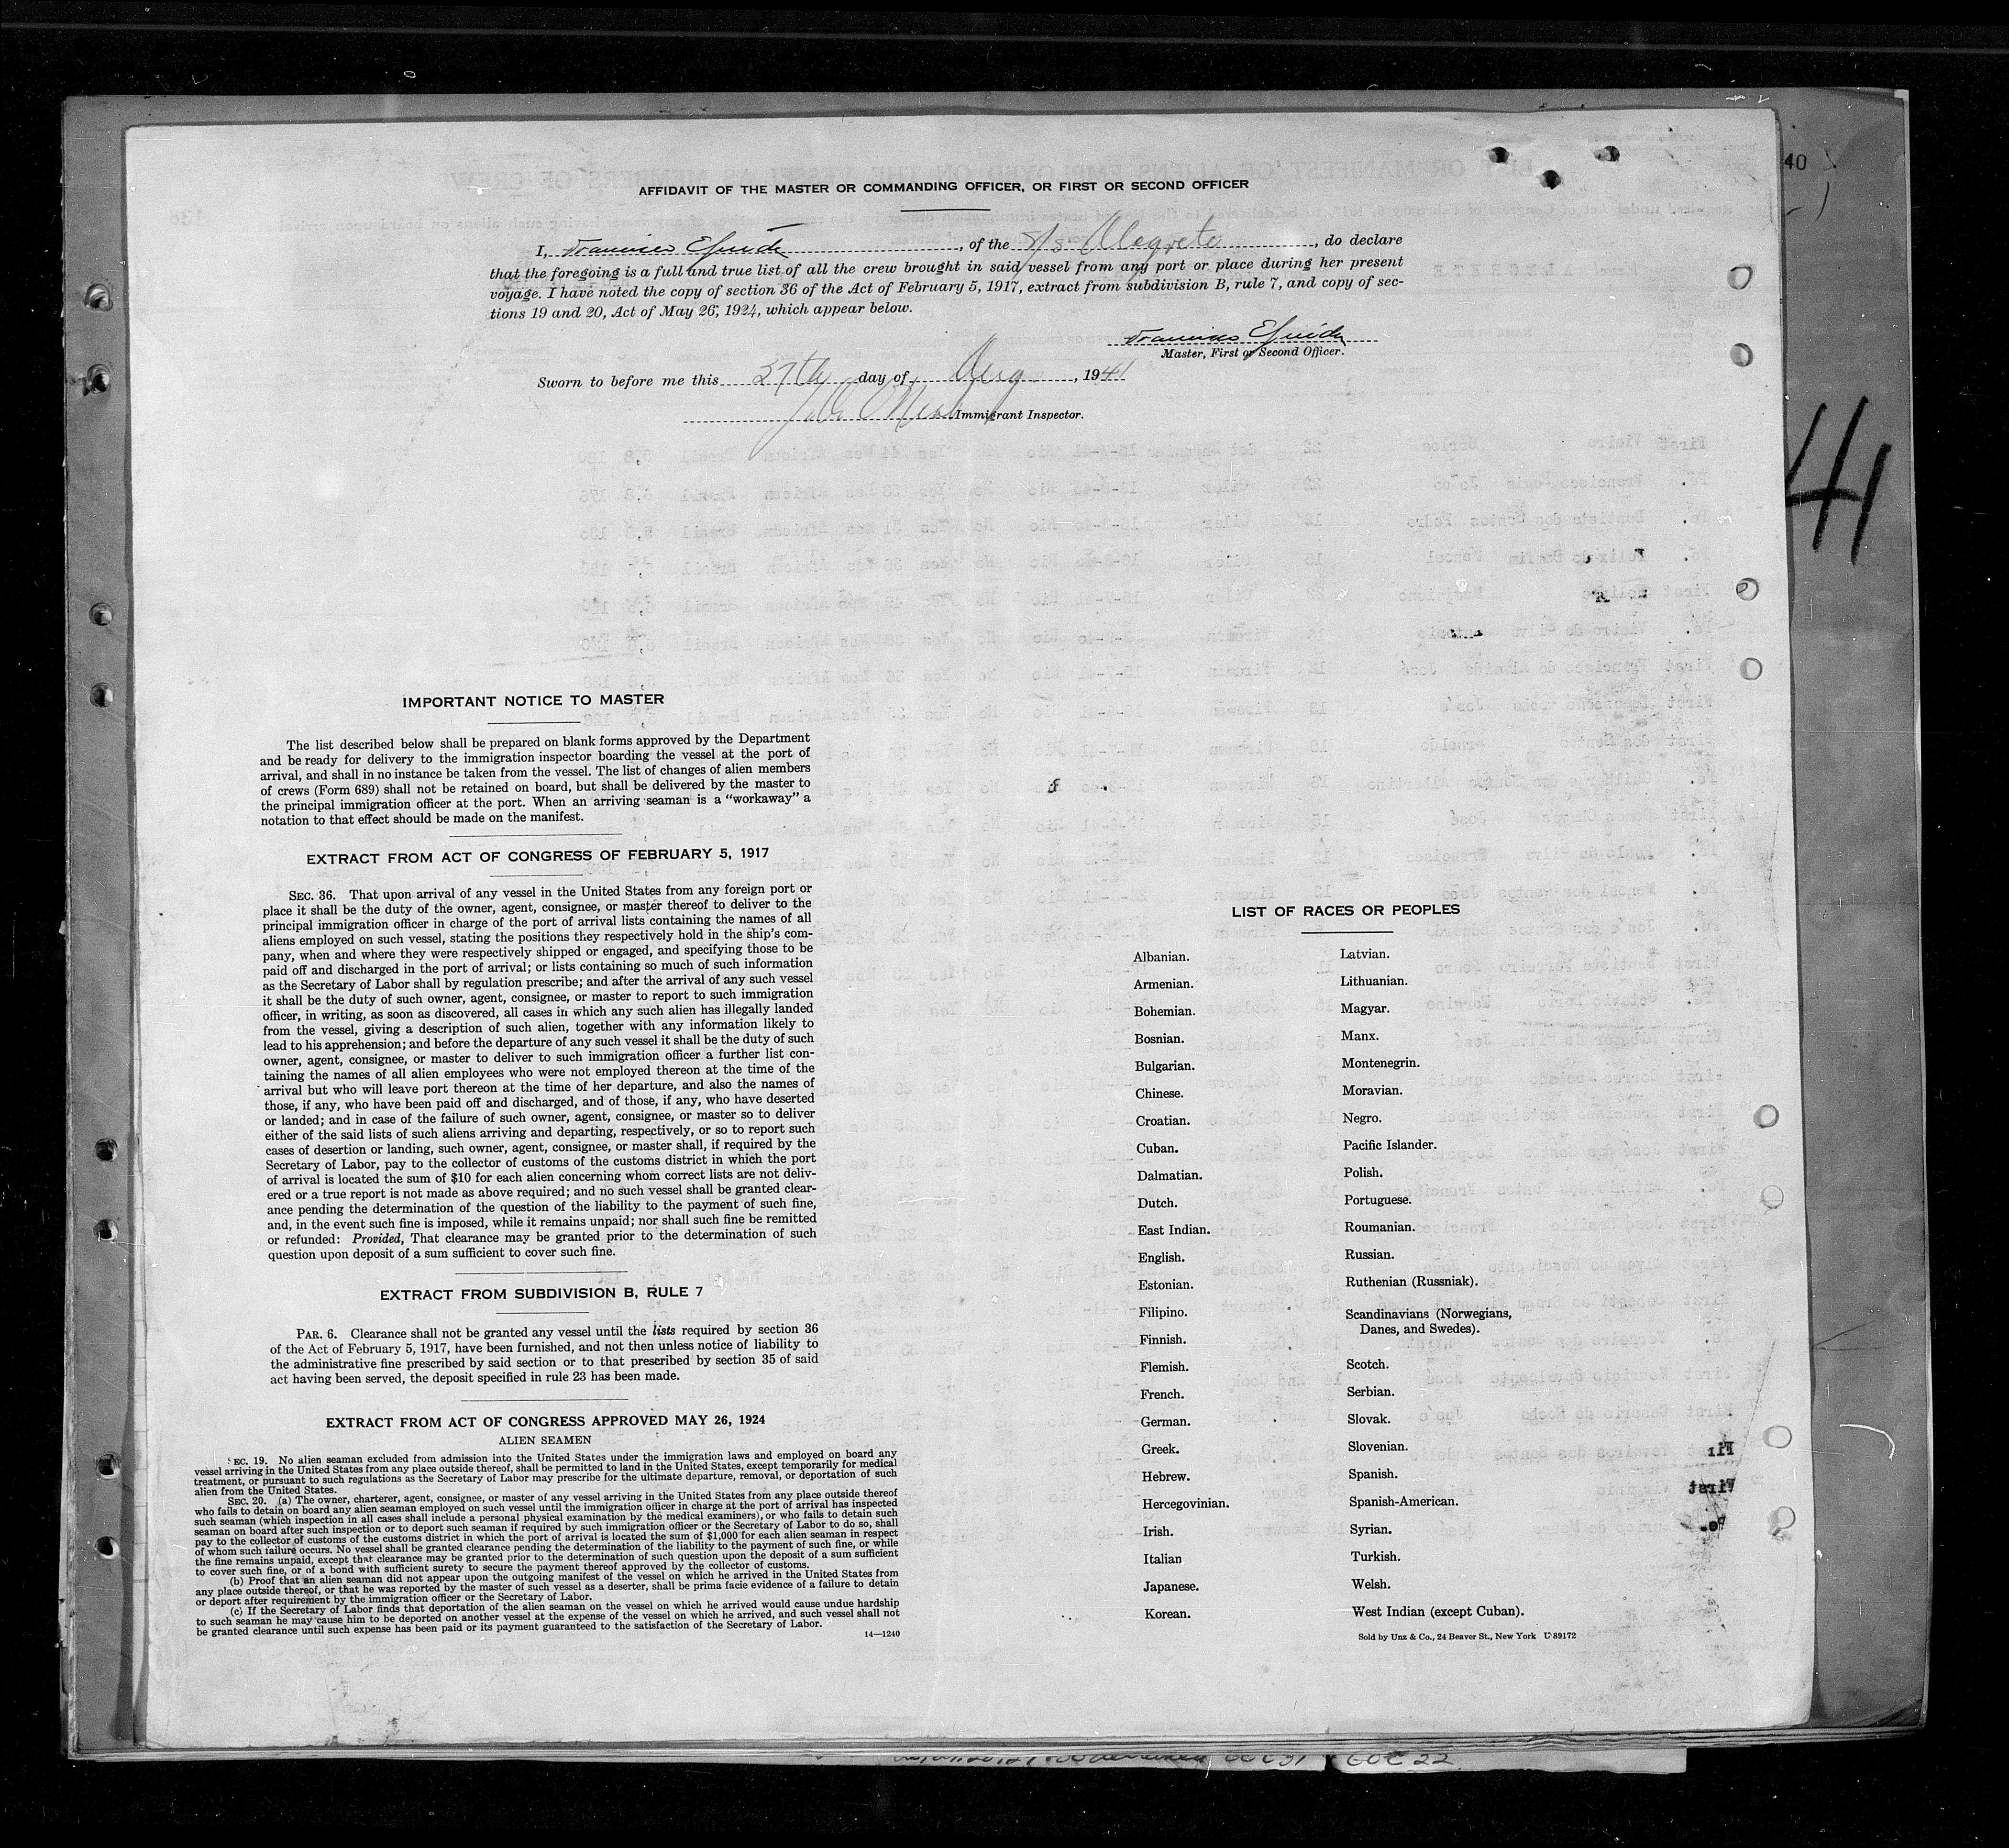 40
41
AFFIDAVIT OF THE MASTER OR COMMANDING OFFICER, OR FIRST OR SECOND OFFICER
I, Francisco, of the S/s Alegrete, do declare
that the foregoing is a full and true list of all the crew brought in said vessel from any port or place during her present
voyage. I have noted the copy of section 36 of the Act of February 5, 1917, extract from subdivision B, rule 7, and copy of sec-
tions 19 and 20, Act of May 26, 1924, which appear below.
Francisco
Master, First or Second Officer.
Sworn to before me this 27th day of Aug, 1941
Immigrant Inspector.
IMPORTANT NOTICE TO MASTER
The list described below shall be prepared on blank forms approved by the Department
and be ready for delivery to the immigration inspector boarding the vessel at the port of
arrival, and shall in no instance be taken from the vessel. The list of changes of alien members
of crews (Form 689) shall not be retained on board, but shall be delivered by the master to
the principal immigration officer at the port. When an arriving seaman is a "workaway" a
notation to that effect should be made on the manifest.
EXTRACT FROM ACT OF CONGRESS OF FEBRUARY 5, 1917
SEC. 36. That upon arrival of any vessel in the United States from any foreign port or
place it shall be the duty of the owner, agent, consignee, or master thereof to deliver to the
principal immigration officer in charge of the port of arrival lists containing the names of all
aliens employed on such vessel, stating the positions they respectively hold in the ship's com-
pany, when and where they were respectively shipped or engaged, and specifying those to be
paid off and discharged in the port of arrival; or lists containing so much of such information
as the Secretary of Labor shall by regulation prescribe; and after the arrival of any such vessel
it shall be the duty of such owner, agent, consignee, or master to report to such immigration
officer, in writing, as soon as discovered, all cases in which any such alien has illegally landed
from the vessel, giving a description of such alien, together with any information likely to
lead to his apprehension; and before the departure of any such vessel it shall be the duty of such
owner, agent, consignee, or master to deliver to such immigration officer a further list con-
taining the names of all alien employees who were not employed thereon at the time of the
arrival but who will leave port thereon at the time of her departure, and also the names of
those, if any, who have been paid off and discharged, and of those, if any, who have deserted
or landed; and in case of the failure of such owner, agent, consignee, or master so to deliver
either of the said lists of such aliens arriving and departing, respectively, or so to report such
cases of desertion or landing, such owner, agent, consignee, or master shall, if required by the
Secretary of Labor, pay to the collector of customs of the customs district in which the port
of arrival is located the sum of $10 for each alien concerning whom correct lists are not deliv-
ered or a true report is not made as above required; and no such vessel shall be granted clear-
ance pending the determination of the question of the liability to the payment of such fine,
and, in the event such fine is imposed, while it remains unpaid; nor shall such fine be remitted
or refunded: Provided, That clearance may be granted prior to the determination of such
question upon deposit of a sum sufficient to cover such fine.
EXTRACT FROM SUBDIVISION B, RULE 7
PAR. 6. Clearance shall not be granted any vessel until the lists required by section 36
of the Act of February 5, 1917, have been furnished, and not then unless notice of liability to
the administrative fine prescribed by said section or to that prescribed by section 35 of said
act having been served, the deposit specified in rule 23 has been made.
EXTRACT FROM ACT OF CONGRESS APPROVED MAY 26, 1924
ALIEN SEAMEN
SEC. 19. No alien seaman excluded from admission into the United States under the immigration laws and employed on board any
vessel arriving in the United States from any place outside thereof, shall be permitted to land in the United States, except temporarily for medical
treatment, or pursuant to such regulations as the Secretary of Labor may prescribe for the ultimate departure, removal, or deportation of such
alien from the United States.
SEC. 20. (a) The owner, charterer, agent, consignee, or master of any vessel arriving in the United States from any place outside thereof
who fails to detain on board any alien seaman employed on such vessel until the immigration officer in charge at the port of arrival has inspected
such seaman (which inspection in all cases shall include a personal physical examination by the medical examiners), or who fails to detain such
seaman on board after such inspection or to deport such seaman if required by such immigration officer or the Secretary of Labor to do so, shall
pay to the collector of customs of the customs district in which the port of arrival is located the sum of $1,000 for each alien seaman in respect
of whom such failure occurs. No vessel shall be granted clearance pending the determination of the liability to the payment of such fine, or while
the fine remains unpaid, except that clearance may be granted prior to the determination of such question upon the deposit of a sum sufficient
to cover such fine, or of a bond with sufficient surety to secure the payment thereof approved by the collector of customs.
(b) Proof that an alien seaman did not appear upon the outgoing manifest of the vessel on which he arrived in the United States from
any place outside thereof, or that he was reported by the master of such vessel as a deserter, shall be prima facie evidence of a failure to detain
or deport after requirement by the immigration officer or the Secretary of Labor.
(c) If the Secretary of Labor finds that deportation of the alien seaman on the vessel on which he arrived would cause undue hardship
to such seaman he may cause him to be deported on another vessel at the expense of the vessel on which he arrived, and such vessel shall not
be granted clearance until such expense has been paid or its payment guaranteed to the satisfaction of the Secretary of Labor.
14—1240
LIST OF RACES OR PEOPLES
Albanian.
Armenian.
Bohemian.
Bosnian.
Bulgarian.
Chinese.
Croatian.
Cuban.
Dalmatian.
Dutch.
East Indian.
English.
Estonian.
Filipino.
Finnish.
Flemish.
French.
German.
Greek.
Hebrew.
Hercegovinian.
Irish.
Italian
Japanese.
Korean.
Latvian.
Lithuanian.
Magyar.
Manx.
Montenegrin.
Moravian.
Negro.
Pacific Islander.
Polish.
Portuguese.
Roumanian.
Russian.
Ruthenian (Russniak).
Scandinavians (Norwegians,
Danes, and Swedes).
Scotch.
Serbian.
Slovak.
Slovenian.
Spanish.
Spanish-American.
Syrian.
Turkish.
Welsh.
West Indian (except Cuban).
Sold by Unz & Co., 24 Beaver St., New York U-89172